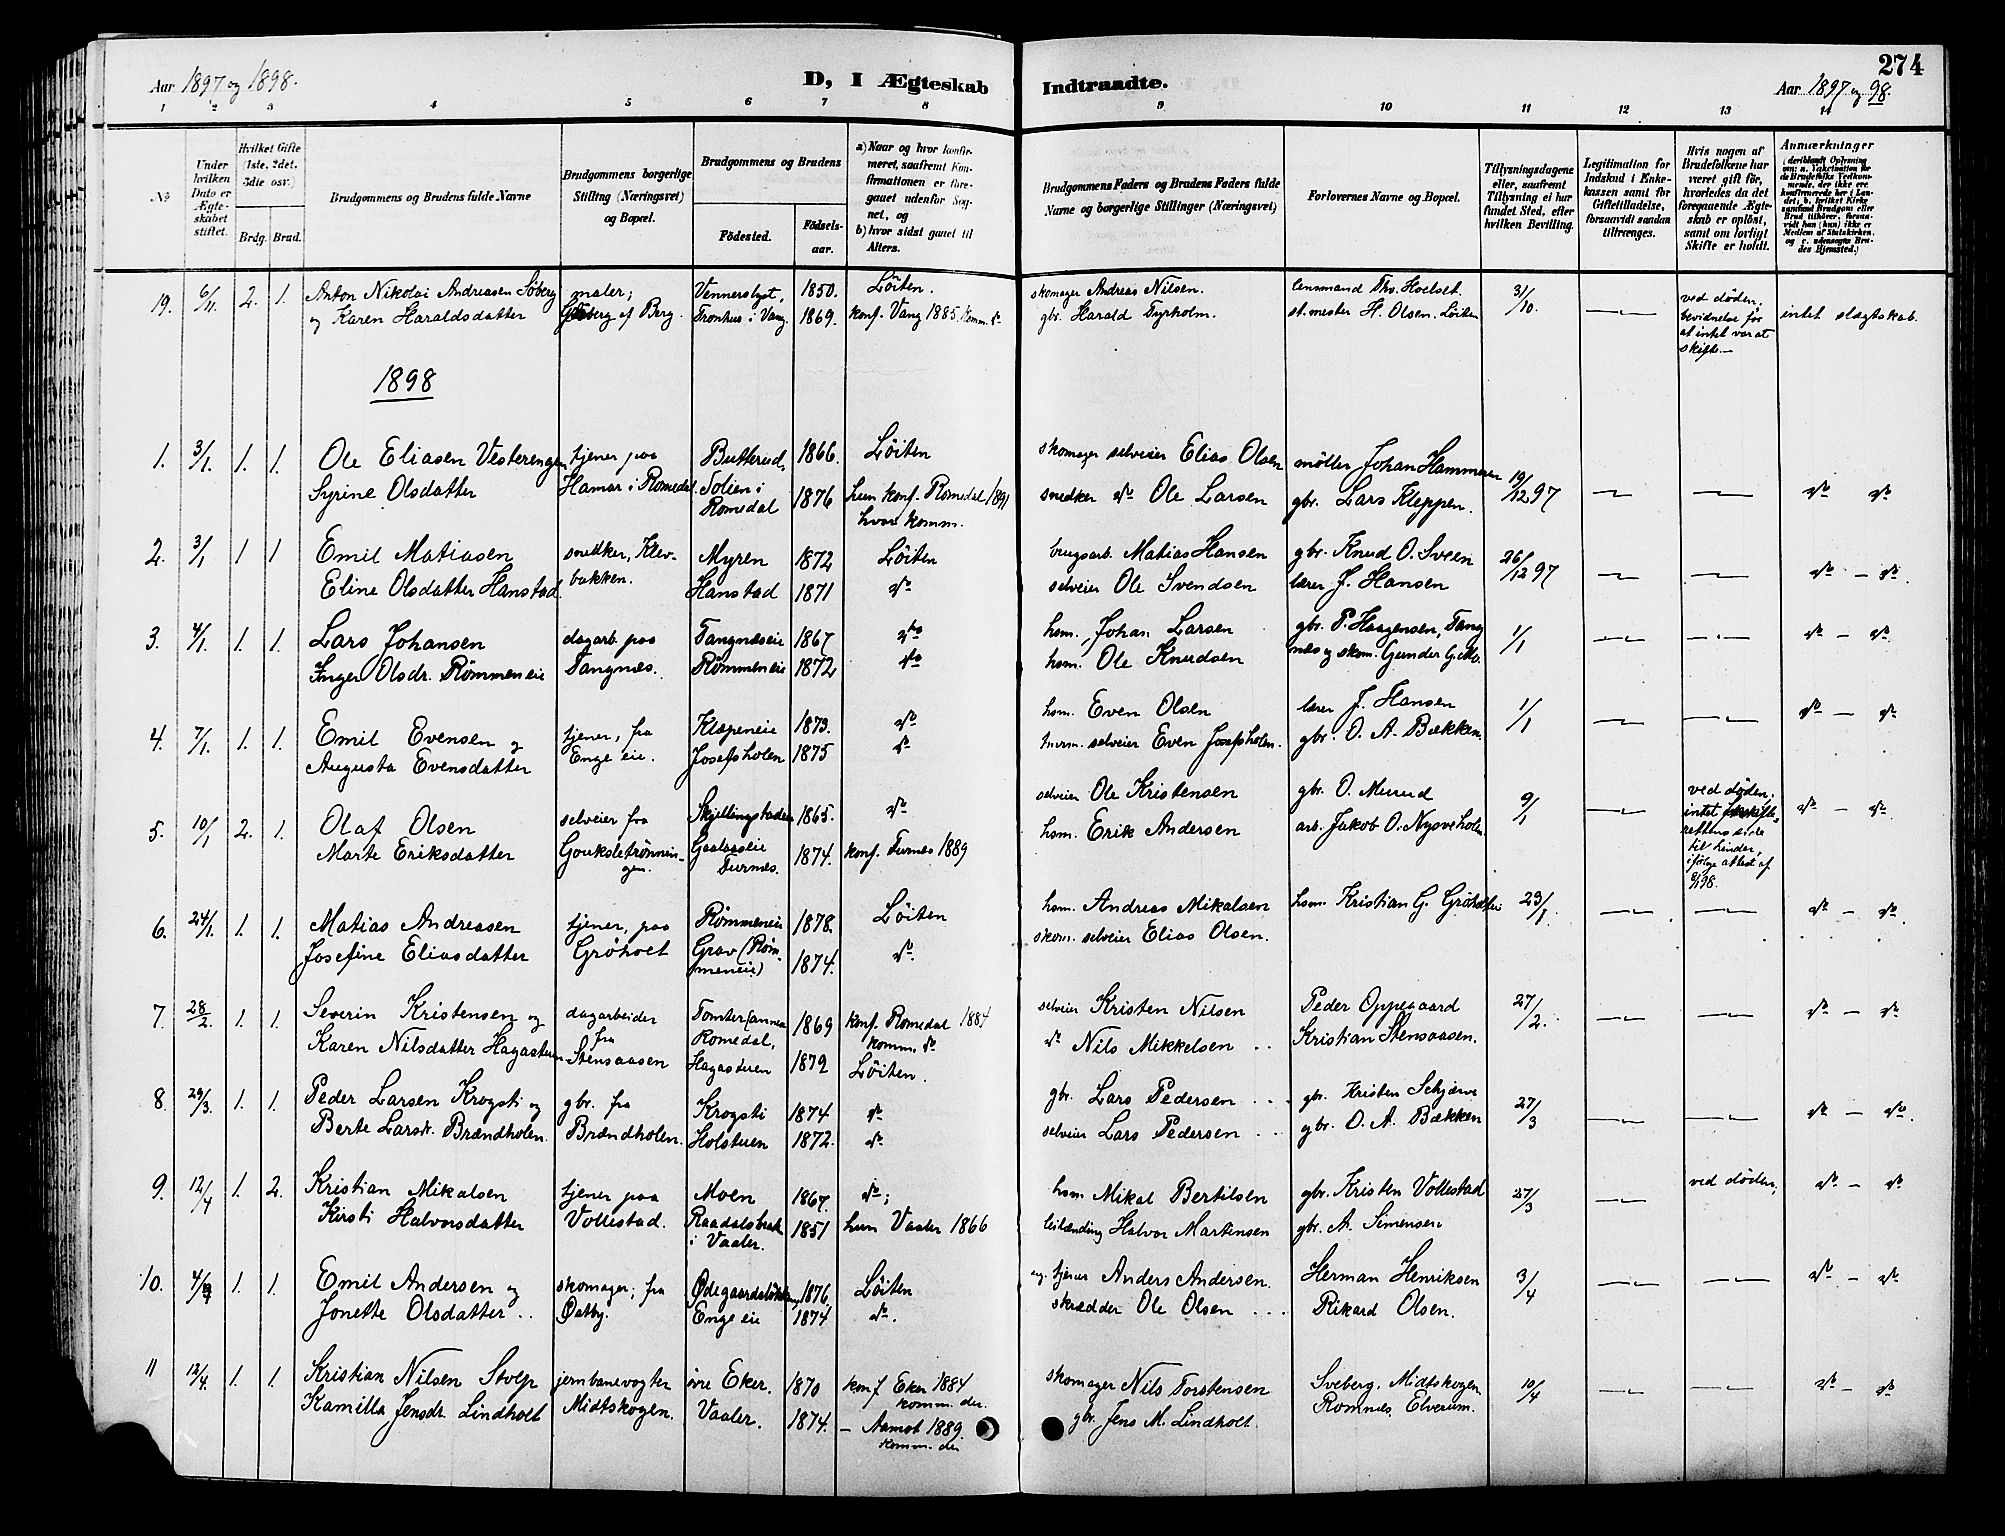 274
Aar 1897 og 1898.
D, I Ægteskab Indtraadte.
Aar 1897 og 98.
1 2 3 4 5 6 7 8 9 10 11 12 13 14
No
Under hvilken Dato er Ægteskabet stiftet.
Hvilket Gifte (1ste, 2det, 3die osv.)
Brdg. Brud.
Brudgommens og Brudens fulde Navne
Brudgommens borgerlige Stilling (Næringsvei) og Bopæl.
Brudgommens og Brudens
Fødested.
Fødselsaar.
a) Naar og hvor konfirmeret, saafremt Konfirmationen er foregaaet udenfor Sognet, og
b) hvor sidst gaaet til Alters.
Brudgommens Faders og Brudens Faders fulde Navne og borgerlige Stillinger (Næringsvei)
Forlovernes Navne og Bopæl.
Tillysningsdagene eller, saafremt Tillysning ei har fundet Sted, efter hvilken Bevilling.
Legitimation for Indskud i Enkekassen samt for Giftetilladelse, forsaavidt saadan tiltrænges.
Hvis nogen af Brudefolkene har været gift før, hvorledes da det foregaaende Ægteskab er opløst, samt om lovligt Skifte er holdt.
Anmærkninger
19. 6/11. 2. 1. Anton Nikolai Andreasen Söberg maler; Vennerslyst, 1850. Löiten. skomager Andreas Nilsen. lensmand Thv. Hoelset. 31/10. ved døden,
og Karen Haraldsdatter af Berg. Tronhus i Vang. 1869. konf. Vang 1885 komm. do gbr. Harald Tyrholm. st.mester H. Olsen. Löiten bevidnelse for at intet var at skifte. — intet slægtskab.
1898
1. 3/1. 1. 1. Ole Eliasen Vesterengen tjener paa Butterud, 1866. Löiten skomager selveier Elias Olsen møller Johan Hammeren 19/12 97
Syrine Olsdatter Hamar i Romedal. Solien i Romedal 1876 hun konf. Romedal 1891 hvor komm. snedker do Ole Larsen gbr. Lars Kleppen. do do
2. 3/1 1 1 Emil Matiasen snedker, Klevbakken. Myren 1872 Löiten brugsarb. Matias Hansen gbr. Knud O. Sveen 26/12 97
Eline Olsdatter Hanstad Hanstad 1871 do selveier Ole Svendsen lærer J. Hansen do — do.
3. 4/1. 1. 1. Lars Johansen dagarb. paa Tangnæseie 1867 do hsm. Johan Larsen gbr. P. Haagensen, Tangnæs 1/1
Inger Olsdr. Rømmeneie Tangnæs. Rømmeneie 1872 do hsm. Ole Knudsen og skom. Gunder G. do — do.
4. 7/1. 1. 1. Emil Evensen og tjener, fra Klæpeneie 1873. do hsm. Even Olsen lærer J. Hansen 1/1
Augusta Evensdatter Enge eie. Josefsholen 1875 do selveier Even Josefsholen. gbr. O. A. Bækken. do — do.
5. 10/1 2. 1. Olaf Olsen selveier fra 1865. do selveier Ole Kristensen gbr. O. Murud 9/1 ved døden.
Marte Eriksdatter Gaalaaseie Furnes. 1874. konf. Furnes 1889 hsm. Erik Andersen arb. Jakob O. intet skifterettens side til hinder, ifølge attest af 8/1 98. do — do.
6. 24/1. 1. 1. Matias Andreasen tjener, paa Rømmeneie 1878. Löiten hsm. Andreas Mikalsen hsm. Kristian G. 23/1.
Josefine Eliasdatter Grøholt Grav (Rømmeneie) 1874. do. skom. selveier Elias Olsen. do — do.
7. 28/2. 1. 1. Severin Kristensen og dagarbeider fra Romedal, 1869 konf. Romedal 1884 komm. do selveier Kristen Nilsen Peder Oppegaard 27/2.
Karen Nilsdatter Hagastuen Stensaasen Hagastuen 1872 Löiten. do Nils Mikkelsen .. Kristian Stensaasen. do — do.
8. 29/3. 1. 1. Peder Larsen Krogsti og gbr. fra Krogsti 1874 do gbr. Lars Pedersen ... gbr. Kristen Schjærve 27/3
Berte Larsdr. Brændholen. Brændholen. Holstuen 1872. do selveier Lars Pedersen ... gbr. O. A. Bækken do — do.
9. 12/4 1. 2. Kristian Mikalsen tjener paa Moen 1867. do; hsm. Mikal Bertilsen gbr. Kristen Vollestad 27/3 ved døden;
Kirsti Halvorsdatter Vollestad. i Vaaler. 1851 hun Vaaler 1866 leilænding Halvor Martensen gbr. A. Simensen do — do
10. 1. 1. Emil Andersen og skomager; fra 1876 Löiten tjener Anders Andersen Herman Henriksen 3/4
Jonette Olsdatter .. Østby. Enge eie 1874 do. skrædder Ole Olsen ... Rikard Olsen. do — do.
11 12/4. 1. 1. Kristian Nilsen Stolp jernbanevogter øvre Eker. 1870 konf Eker 1884 komm. der. skomager Nils Torstensen Sveberg, Midtskogen 10/4
Kamilla Jensdr. Lindholt Midtskogen. Vaaler. 1874. — Aamot 1889. komm. der gbr. Jens M. Lindholt. Romnes, Elverum. do — do